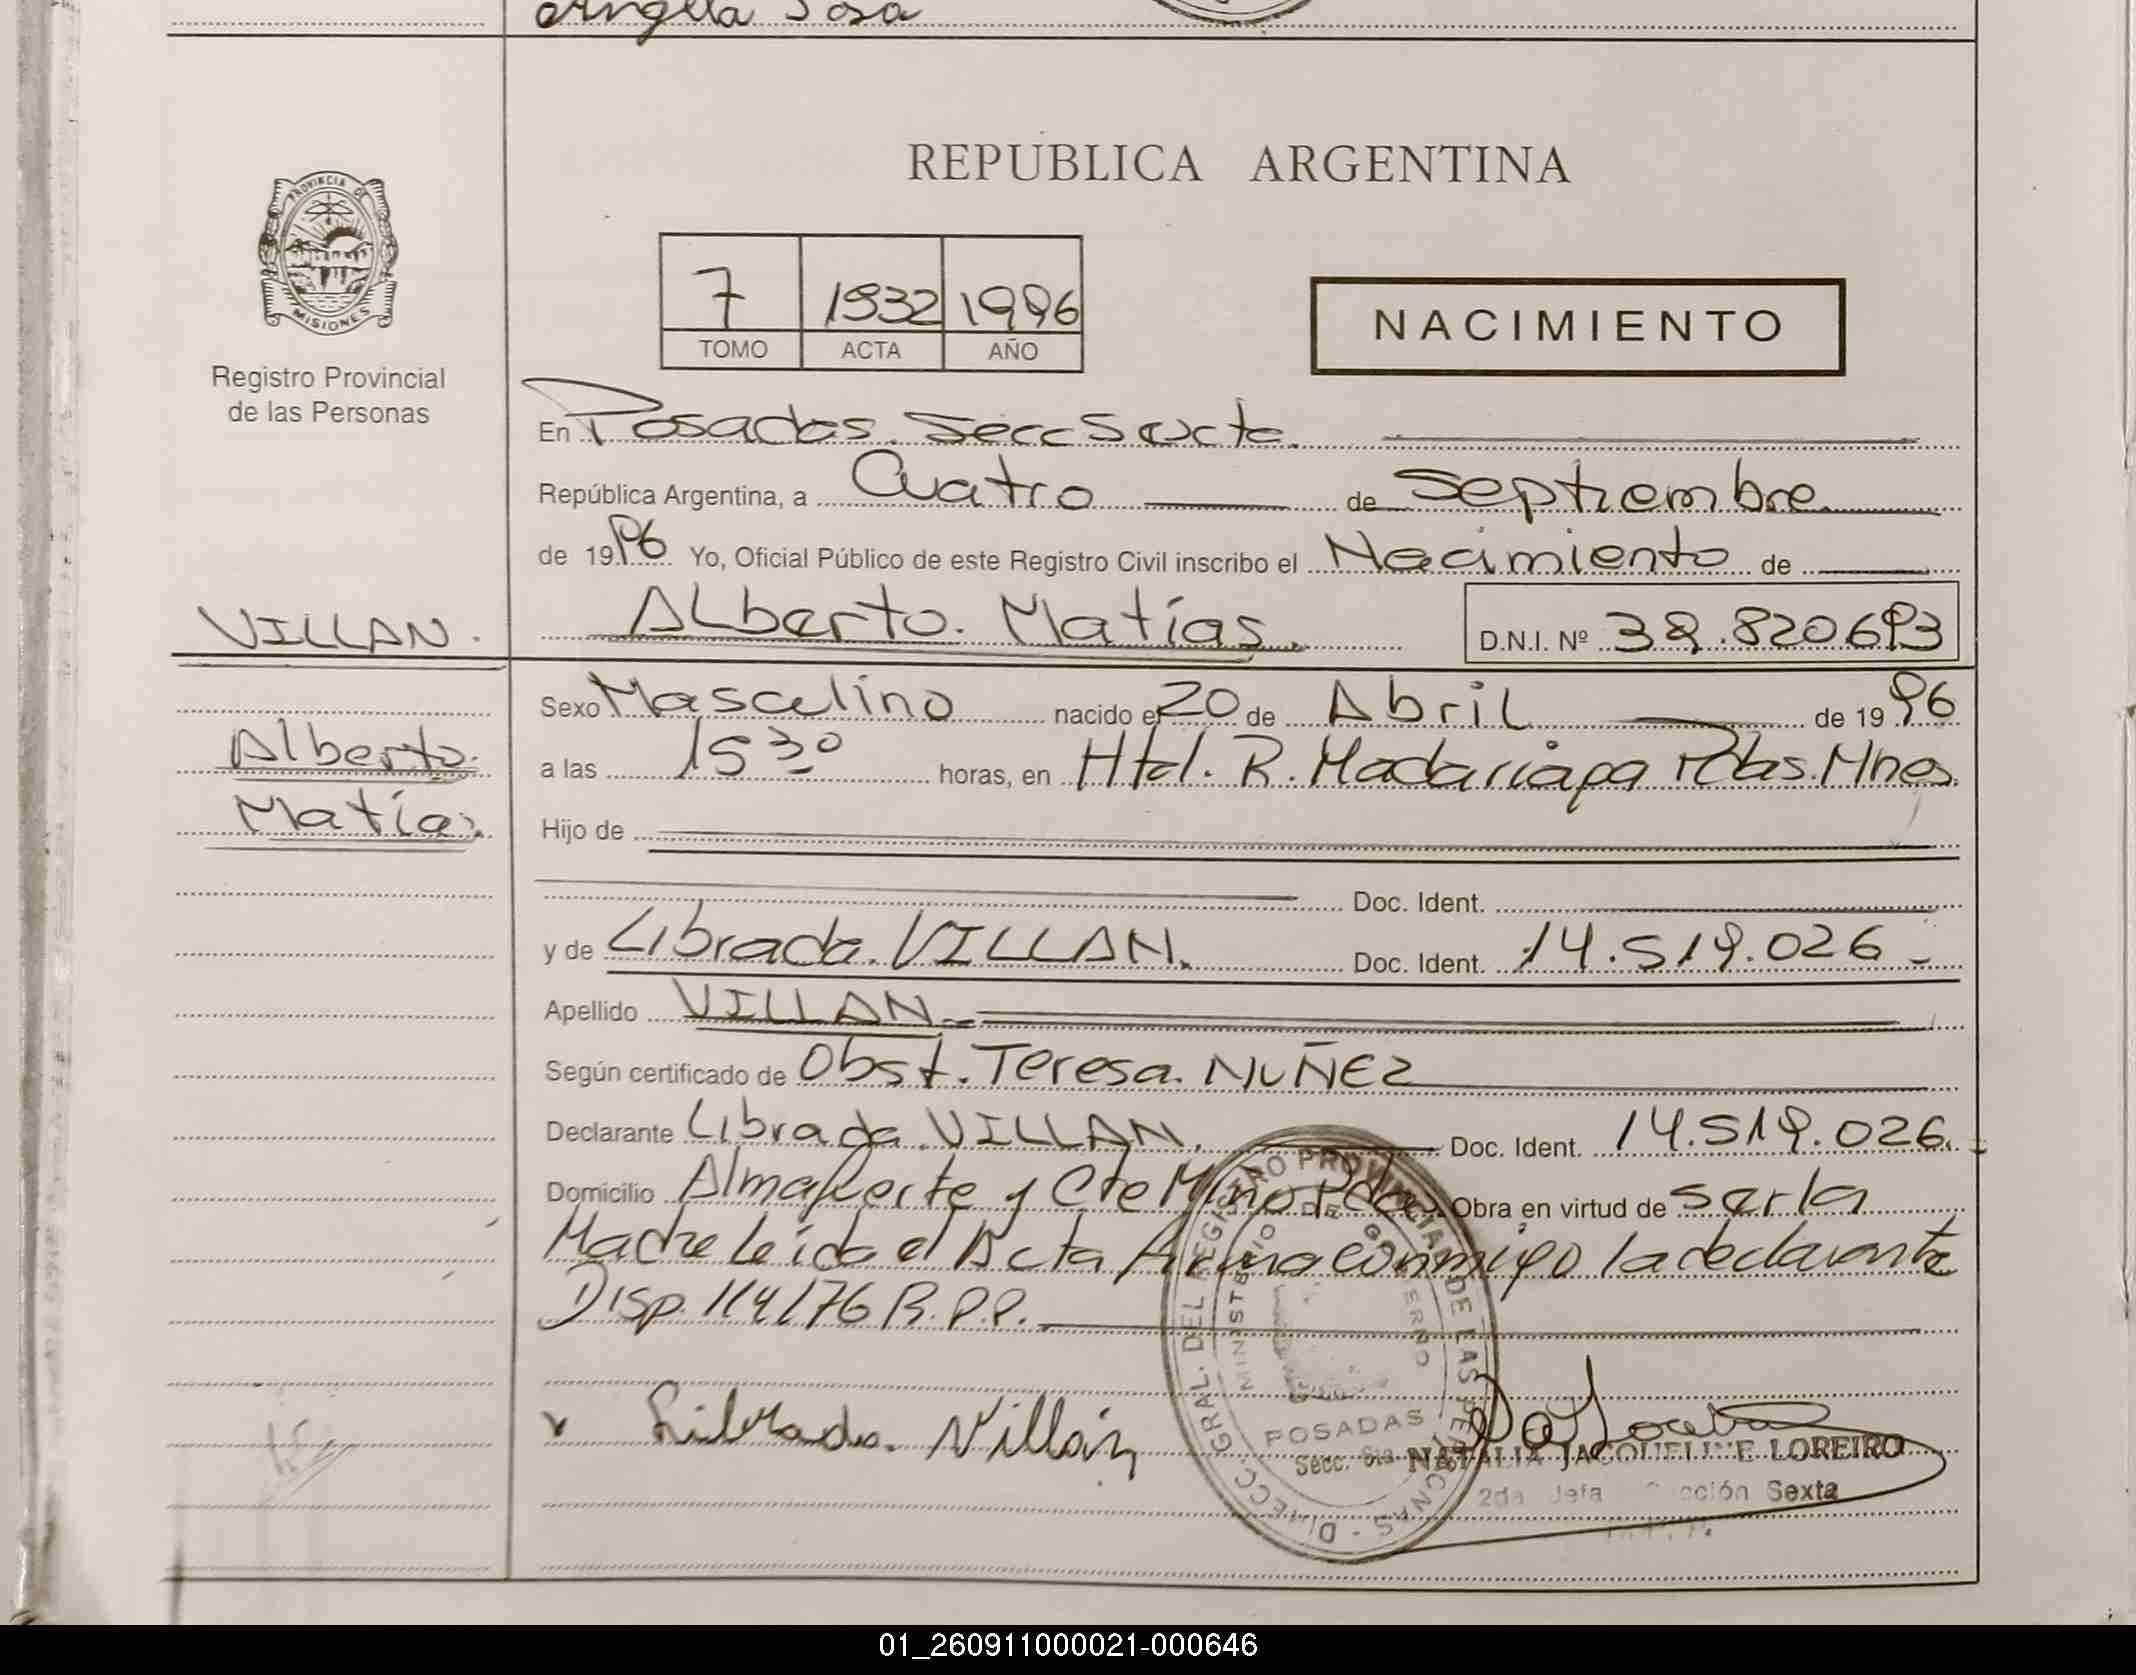 Angela Sosa
REPUBLICA ARGENTINA
PROVINCIA DE
MISIONES
Registro Provincial
de las Personas
7 1932 1996
TOMO ACTA AÑO
NACIMIENTO
En Posadas. Secc Sexta.
República Argentina, a Cuatro de Septiembre
de 1996 Yo, Oficial Público de este Registro Civil inscribo el Nacimiento de
VILLAN. Alberto. Matías. D.N.I. Nº 39.820.693
Sexo Masculino nacido el 20 de Abril de 1996
Alberto.
a las 15 30 horas, en Htal. R. Madariaga Pdas. Mnes.
Matías.
Hijo de
Doc. Ident.
y de Librada. VILLAN. Doc. Ident. 14.519.026.-
Apellido VILLAN.=
Según certificado de Obst. Teresa. NUÑEZ
Declarante Librada. VILLAN. Doc. Ident. 14.519.026.
Domicilio Almafuerte y Cte Miño Pdas. Obra en virtud de ser la
Madre Leída el Acta Firma conmigo la declarante
Disp. 114/76 R.P.P.
Librada. Villán
DIRECC. GRAL. DEL REGISTRO PROVINCIAL DE LAS PERSONAS
MINISTERIO DE GOBIERNO
POSADAS
Secc. 6ta
NATALIA JACQUELINE LOREIRO
2da Jefa Sección Sexta
01_260911000021-000646